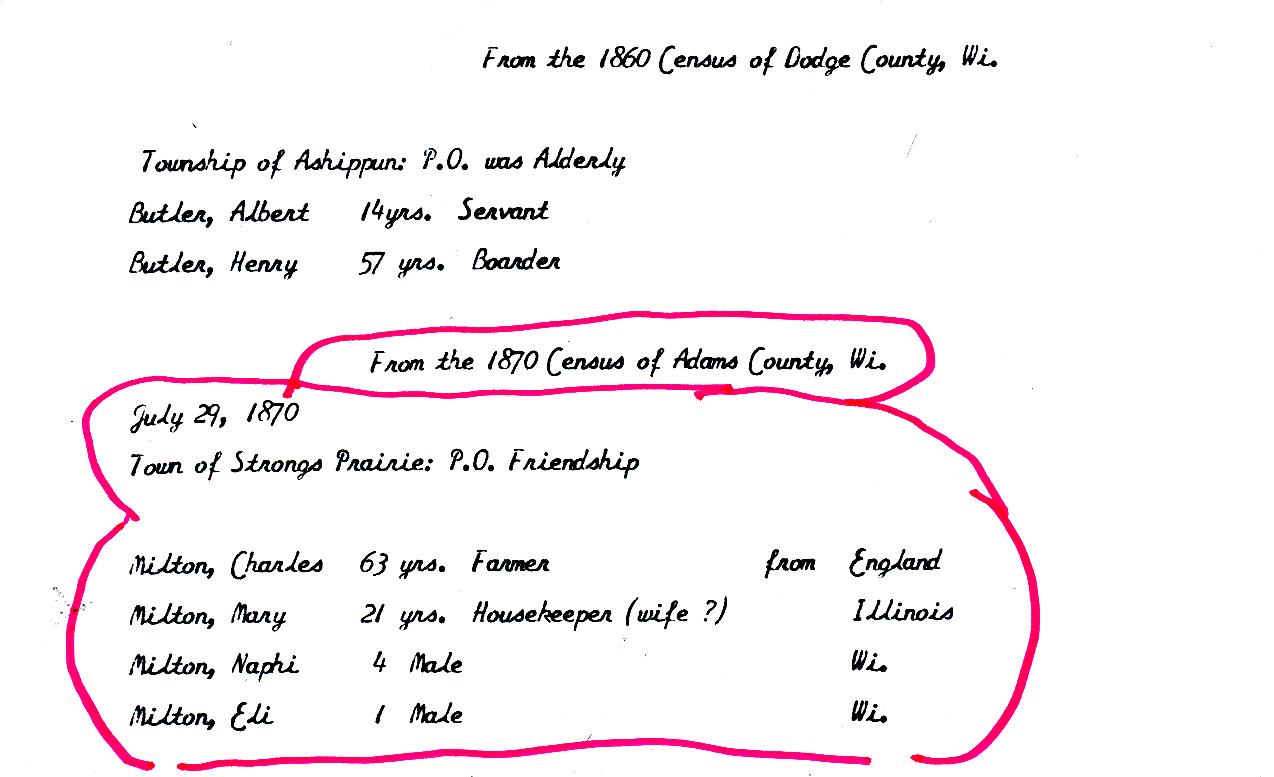 From the 1860 Census of Dodge County, Wi.
Township of Ashippun: P.O. was Alderly
Butler, Albert 14yrs. Servant
Butler, Henry 57 yrs. Boarder
From the 1870 Census of Adams County, Wi.
July 29, 1870
Town of Strongs Prairie: P.O. Friendship
Milton, Charles 63 yrs. Farmer from England
Milton, Mary 21 yrs. Housekeeper (wife ?) Illinois
Milton, Naphi 4 Male Wi.
Milton, Eli 1 Male Wi.